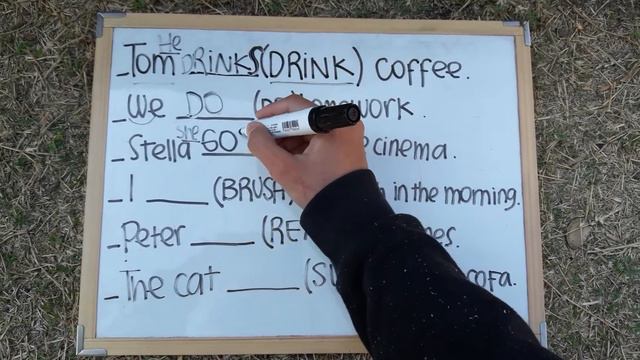 He
_Tom DRINKS (DRINK) coffee.
_We DO work.
she
_Stella GO cinema.
_I ____ (BRUSH in the morning.
_Peter ____
_The cat ____